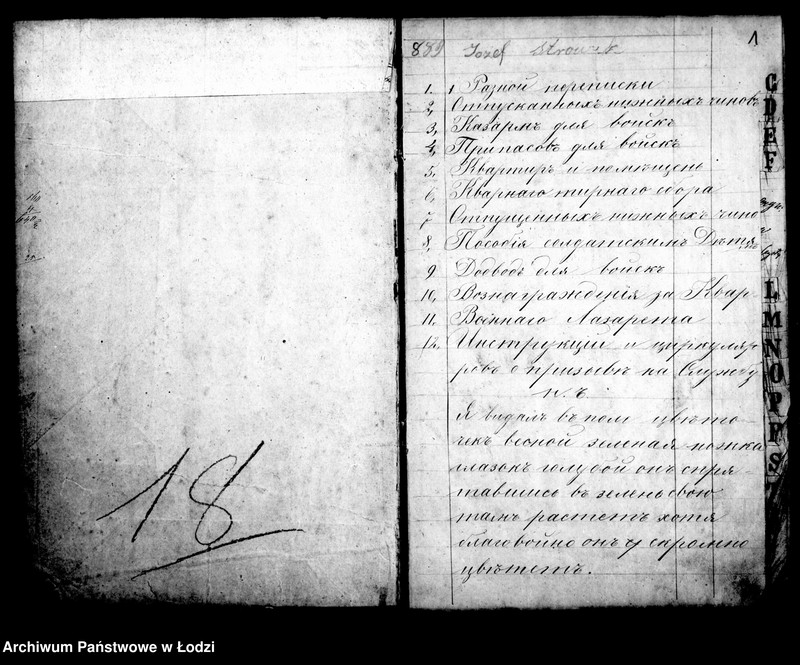 18
1
889 Jozef
1. Разной переписки
2, Отпусканныхъ нижныхъ чиновъ
3, Казармъ для войскъ
4, Припасовъ для войскъ
5, Квартиръ и помѣщенъ
6, Кварнаго тирнаго сбора
7 Отпущенныхъ нижныхъ чино
8, Пособія солдатскимъ Дѣтя
9 Додводъ для войскъ
10, Вознагражденія за Квар
11, Военнаго Лазарета
12, Инструкции и циркуля
ровъ о призывѣ на Службу
Я видалъ въ пол цвѣто
чекъ весной зеленая ножка
глазокъ голубой онъ спря
тавшись въ зелено свою
тамъ растетъ хотя
онъ у скромно
цвѣтетъ.
C D E F
L M N O P R S
Archiwum Państwowe w Łodzi